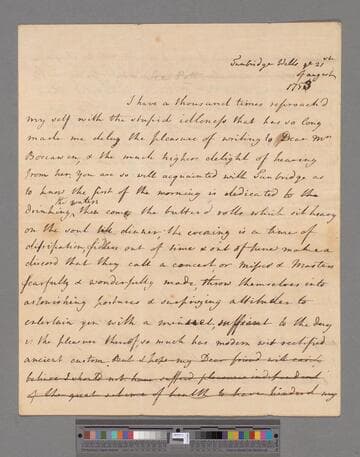 Tunbridge Wells ye 21st
August
1753
I have a thousand times reproach'd
my self with the stupid idleness that has so long
made me delay the pleasure of writing to Dear Mrs
Boscawen, & the much higher delight of hearing
from her. You are so well acquainted with Tunbridge as
to know the first of the morning is dedicated to the
the waters
Drinking, then comes the butterd rolls which sit heavy
on the soul till dinner. the evening is a time of
dissipation, fiddlers out of time & out of tune make a
discord that they call a concert, or Misses & Masters
fearfully & wonderfully made, throw themselves into
astonishing postures & surprizing attitudes to
entertain you with a minuet, sufficient to the day
is the pleasure thereof, so much has modern wit rectified
ancient custom. But I hope my Dear friend will
believe I should not have sufferd pleasure independent
of the great scheme of health to have hinderd my